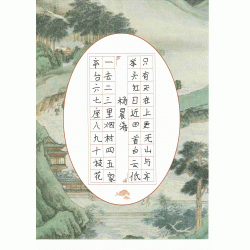 只有天在上更无山与齐
举头红日近回首白云低
杨晨海
一去二三里烟村四五家
亭台六七座八九十枝花